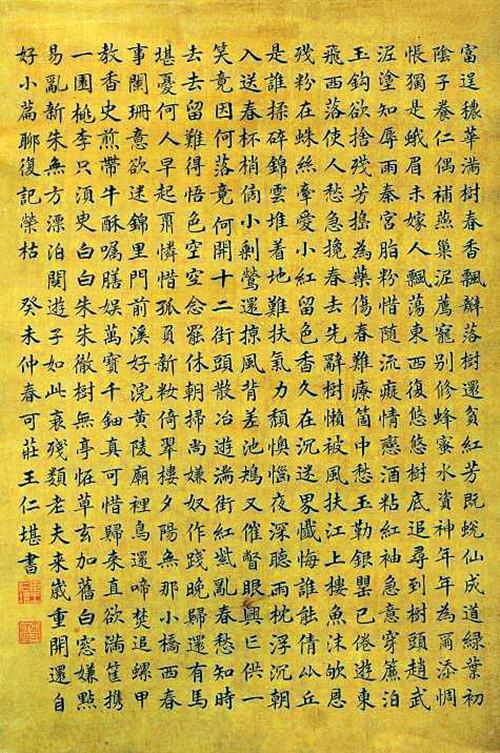 富逞穠華滿樹春香飄瓣落樹還貧芳既蛻仙成道綠葉初
陰子養仁偶補燕巢泥薦寵別修蜂蜜水資神年年為爾添惆
悵獨是蛾眉未嫁人飄蕩東西復悠悠樹底追尋到樹頭趙武
泥塗知辱雨秦宮脂粉惜隨流癡情戀酒粘紅袖急意穿簾泊
玉鉤欲捨殘芳搗為藥傷春難療箇中愁玉勒銀罌已倦遊東
飛西落使人愁急攙春去先辭樹懶被風扶江上樓魚沫欱恩
殘粉在蛛絲牽愛小紅留色香久在沉迷界懺悔誰能倩丛丘
是誰揉碎錦雲堆着地難扶氣力頹懊惱夜深聽雨枕浮沉朝
入送春杯梢傍小剩鶯還掠風背差池鳩又催瞥眼興亡供一
笑竟因何落竟何開十二街頭散冶遊滿街紅紫亂春愁知時
去去留難得悟色空空念罷休朝掃尚嫌奴作踐晚歸還有馬
堪憂何人早起肅憐惜孤負新妝倚翠樓夕陽無那小橋西春
事闌珊意欲迷錦里門前溪好浣黃陵廟裡鳥還啼焚追螺甲
教香史煎帶牛酥囑膳娛萬寶千鈿真可惜歸來直欲滿筐攜
一團桃李只須臾白白朱朱徹樹無亭怪草玄加舊白窓嫌點
易亂新朱無方漂泊關遊子如此衰殘類老夫來歲重開還自
好小篇聊復記榮枯 癸未仲春可莊王仁堪書